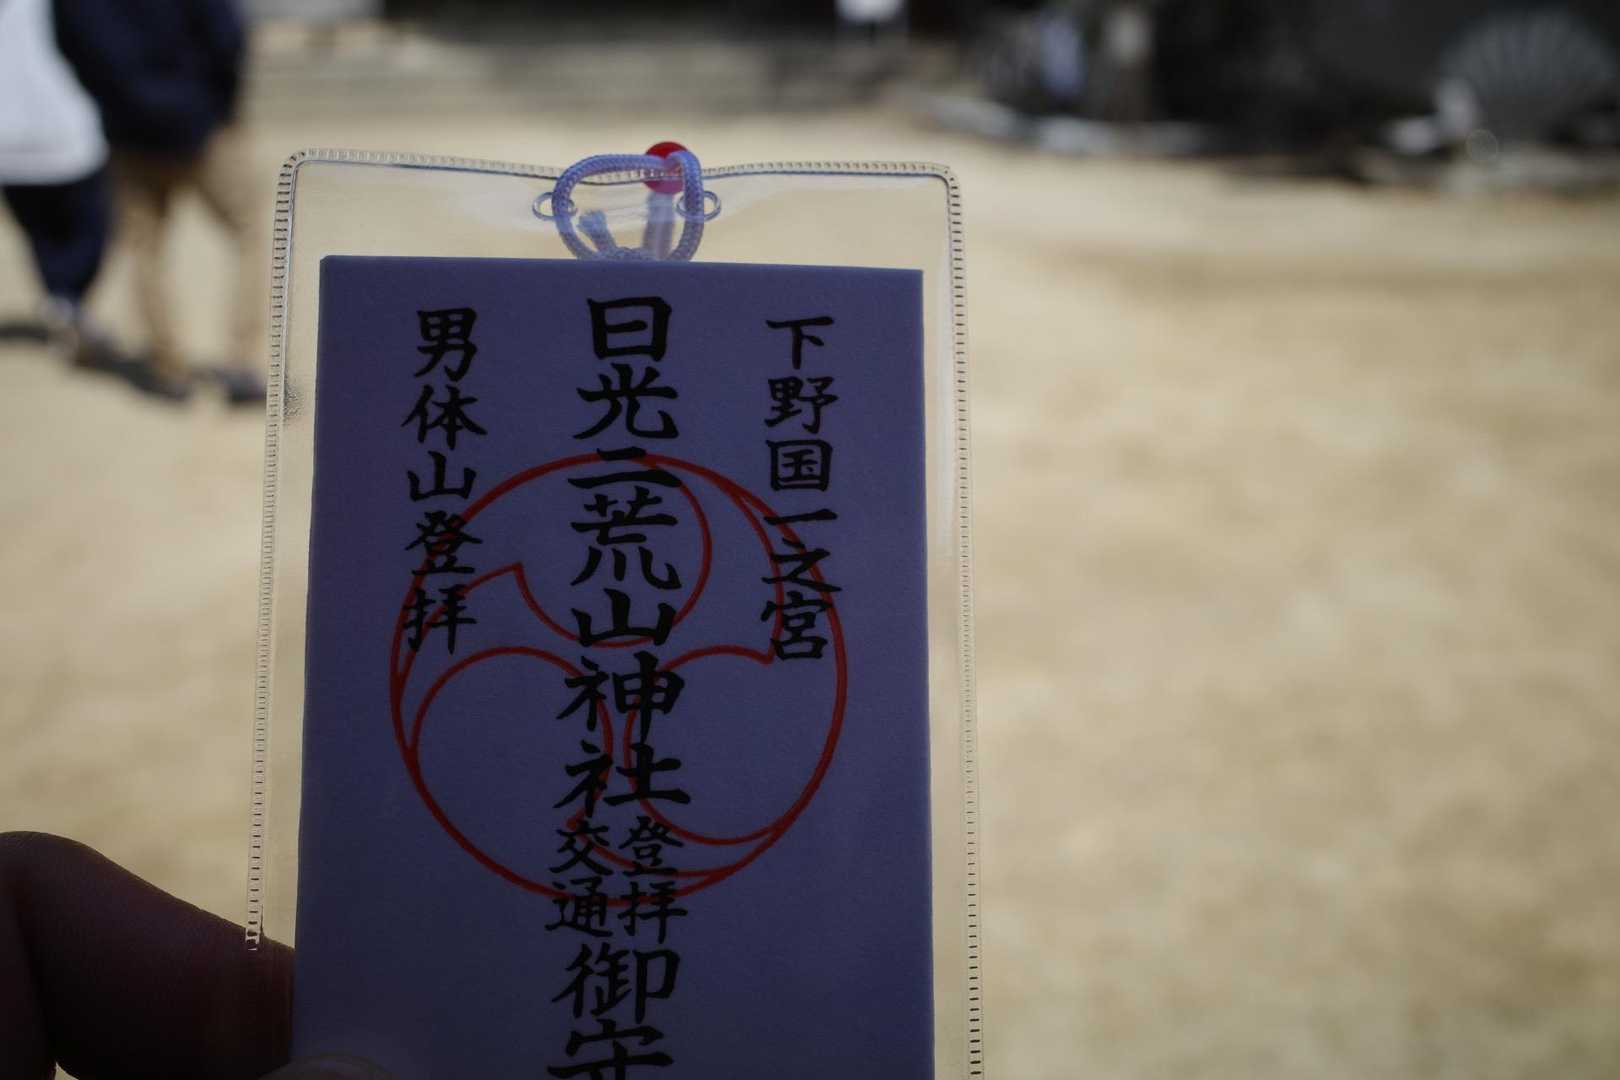 下野国一之宮
日光二荒山神社
登拝
交通
御守
男体山登拝